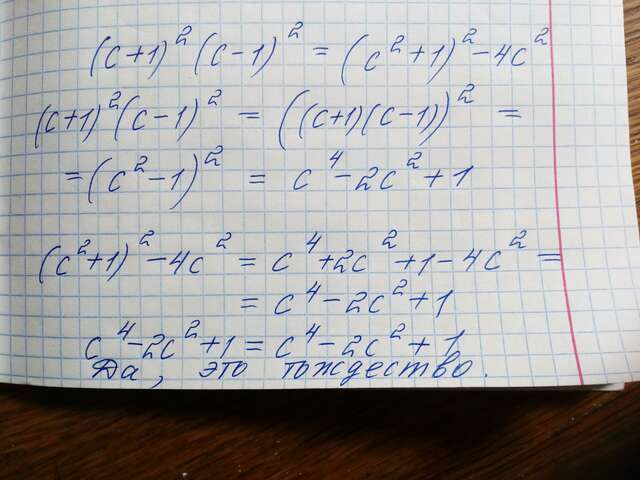 (c+1)²(c-1)² = (c²+1)²-4c²
(c+1)²(c-1)² = ((c+1)(c-1))² =
=(c²-1)² = c⁴-2c²+1
(c²+1)²-4c² = c⁴+2c²+1-4c² =
= c⁴-2c²+1
c⁴-2c²+1 = c⁴-2c²+1
Да, это тождество.